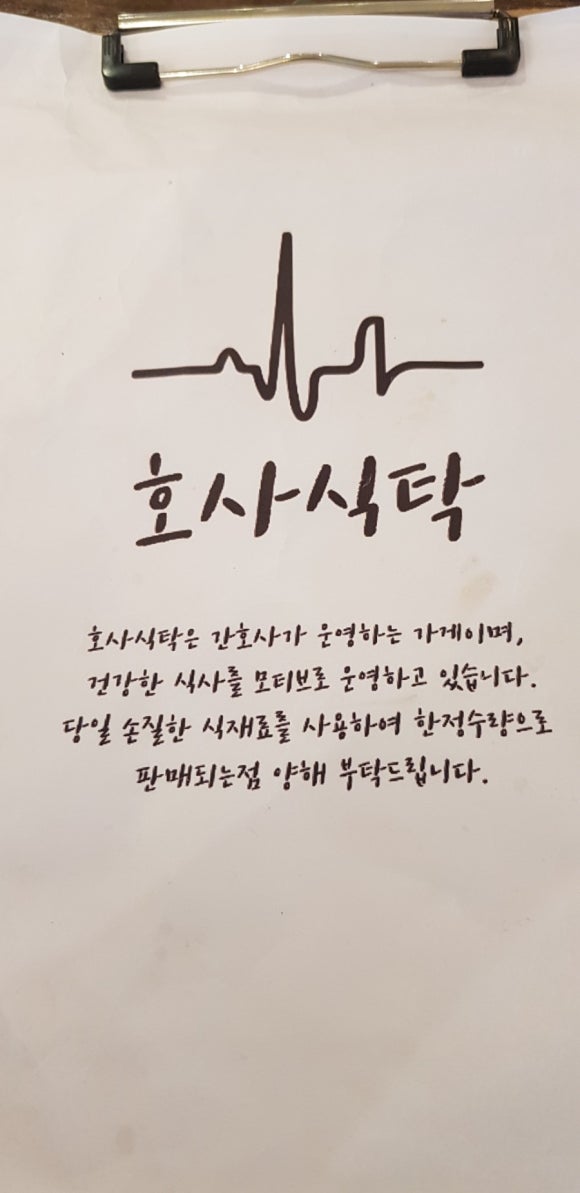 호사식탁
호사식탁은 간호사가 운영하는 가게이며,
건강한 식사를 모티브로 운영하고 있습니다.
당일 손질한 식재료를 사용하여 한정수량으로
판매되는점 양해 부탁드립니다.